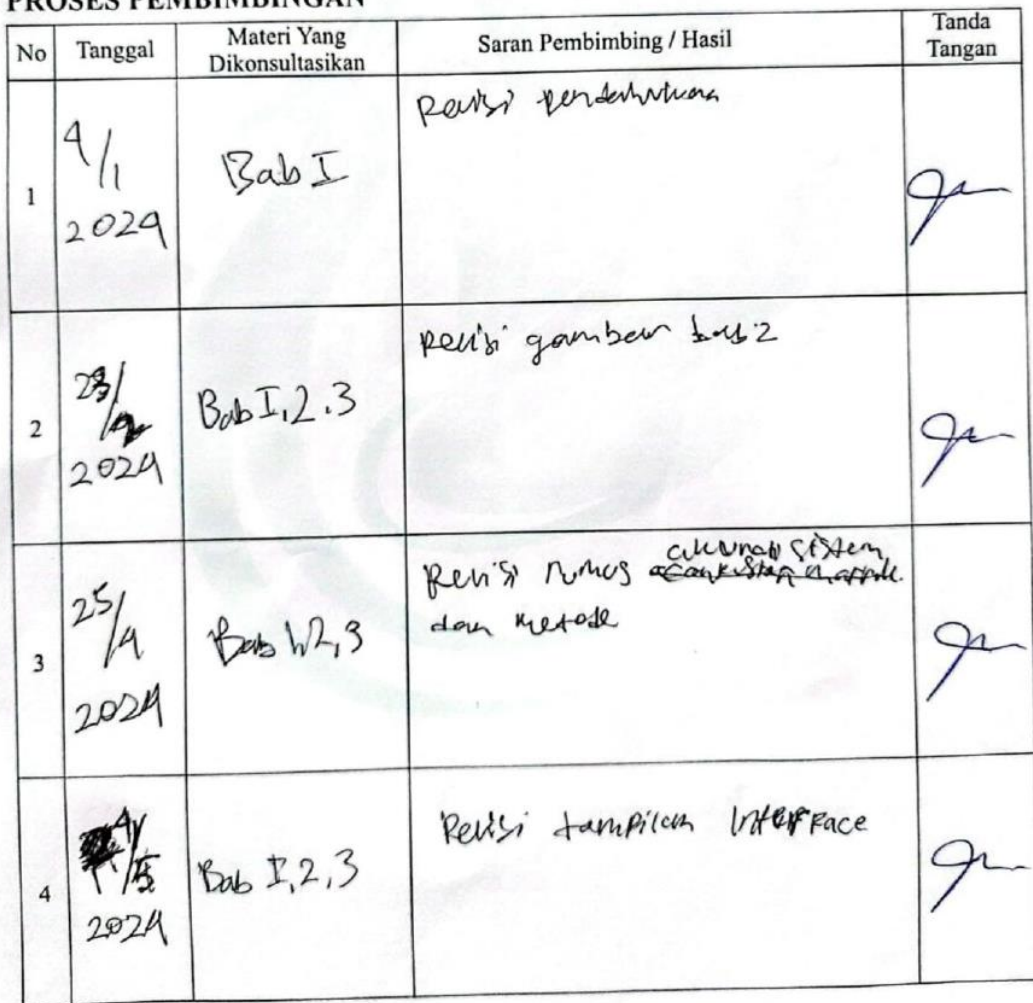 PROSES PEMBIMBINGAN
No Tanggal Materi Yang Dikonsultasikan Saran Pembimbing / Hasil Tanda Tangan
1
4/1
2024
Bab I
Revisi pendahuluan
2
23/
2024
Bab I, 2, 3
Revisi gambar bab 2
3
25/4
2024
Bab 1, 2, 3
Revisi rumus akurasi sistem
dan metode
4
4/5
2024
Bab I, 2, 3
Revisi tampilan interface